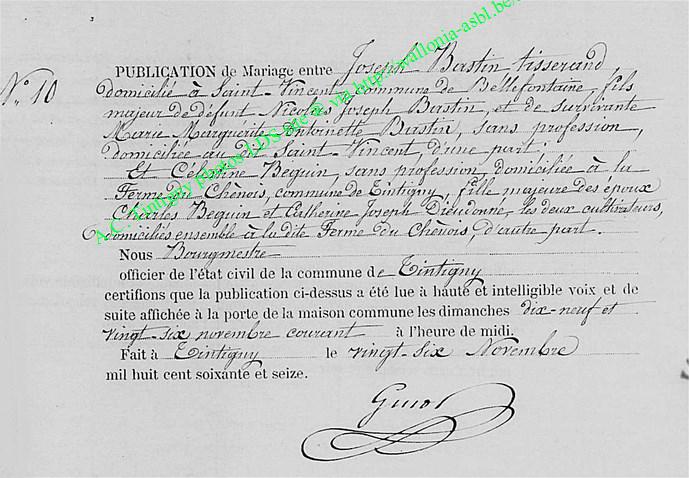 N.° 10
PUBLICATION de Mariage entre Joseph Bastin tisserand,
domicilié à Saint-Vincent commune de Bellefontaine, fils
majeur de défunt Nicolas Joseph Bastin, et de survivante
Marie Marguerite Antoinette Bastin, sans profession,
domiciliée au dit Saint-Vincent, d'une part;
Et Célestine Bequin, sans profession, domiciliée à la
Ferme du Chênois, commune de Tintigny, fille majeure des époux
Charles Bequin et Catherine Joseph Dieudonné, les deux cultivateurs,
domiciliés ensemble à la dite Ferme du Chênois, d'autre part.
Nous Bourgmestre
officier de l'état civil de la commune de Tintigny
certifions que la publication ci-dessus a été lue à haute et intelligible voix et de
suite affichée à la porte de la maison commune les dimanches dix-neuf et
vingt-six novembre courant à l'heure de midi.
Fait à Tintigny le vingt-six Novembre
mil huit cent soixante et seize.
A.C. Tintigny photos LDS site @ via http://wallonia-asbl.be/